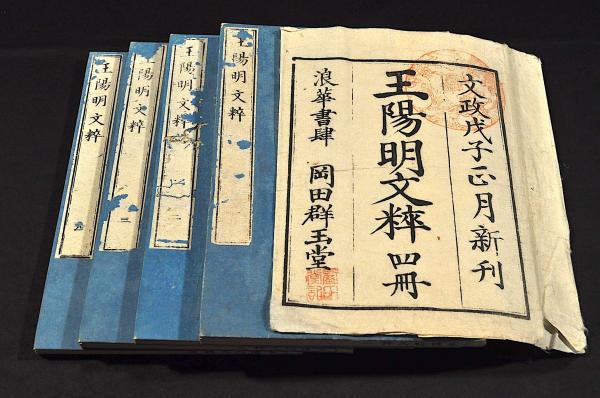 文政戊子正月新刊
王陽明文粹 四冊
浪華書肆 岡田群玉堂
王陽明文粹
王陽明文粹 二
王陽明文粹 三
王陽明文粹